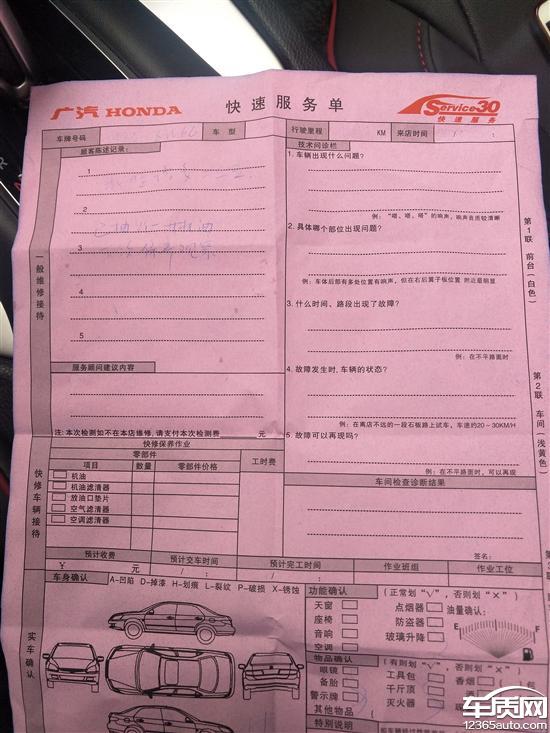 广汽 HONDA
快速服务单
Service30
快速服务
车牌号码
车 型
行驶里程
KM
来店时间
顾客陈述记录:
1
2
3
4
5
一般维修接待
服务顾问建议内容
注:本次检测如不在本店维修,请支付本次检测费 元
技术问诊栏
1.车辆出现什么问题?
例:“嗒、嗒、嗒”的响声,响声音质较清晰
2.具体哪个部位出现问题?
例:车体后部有多处位置有响声,但在右后翼子板位置 附近最明显
3.什么时间、路段出现了故障?
例:在不平路面时
4.故障发生时,车辆的状态?
例:在离店不远的一段石板路上试车,车速约20~30KM/H
5.故障可以再现吗?
例:在不平路面时,可以再现
第1联 前台(白色)
第2联 车间(浅黄色)
快修车辆接待
快修保养作业
零部件
工时费
项目
数量
零部件价格
机油
机油滤清器
放油口垫片
空气滤清器
空调滤清器
车间检查诊断结果
签名:
预计收费
预计交车时间
预计完工时间
作业班组
作业工位
¥ 元
实车确认
车身确认
A-凹陷 D-掉漆 H-划痕 L-裂纹 P-破损 X-锈蚀
功能确认
(正常划“√”,否则划“×”)
天窗
点烟器
油量确认:
座椅
防盗器
音响
玻璃升降
空调
E
F
物品确认
(有则划“√”,否则划“×”)
眼镜
工具包
香烟
备胎
千斤顶
警示牌
灭火器
其他物品
特别说明
车质网
12365auto.com